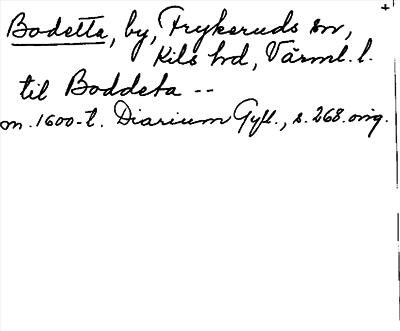 +
Bodetta, by, Frykeruds sn,
Kils hd, Värml. l.
til Boddeta --
m. 1600-t. Diarium Gyll., s. 268. orig.